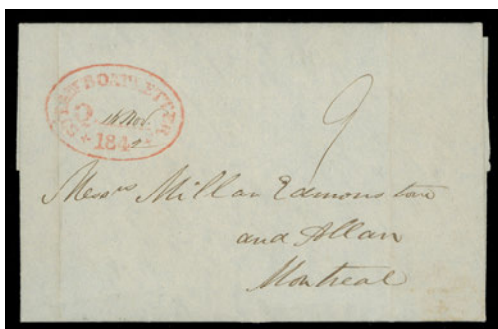 STEAM BOAT LETTER
Q
14 Nov.
184
9
Messrs Millar Edmonstone
and Allan
Montreal